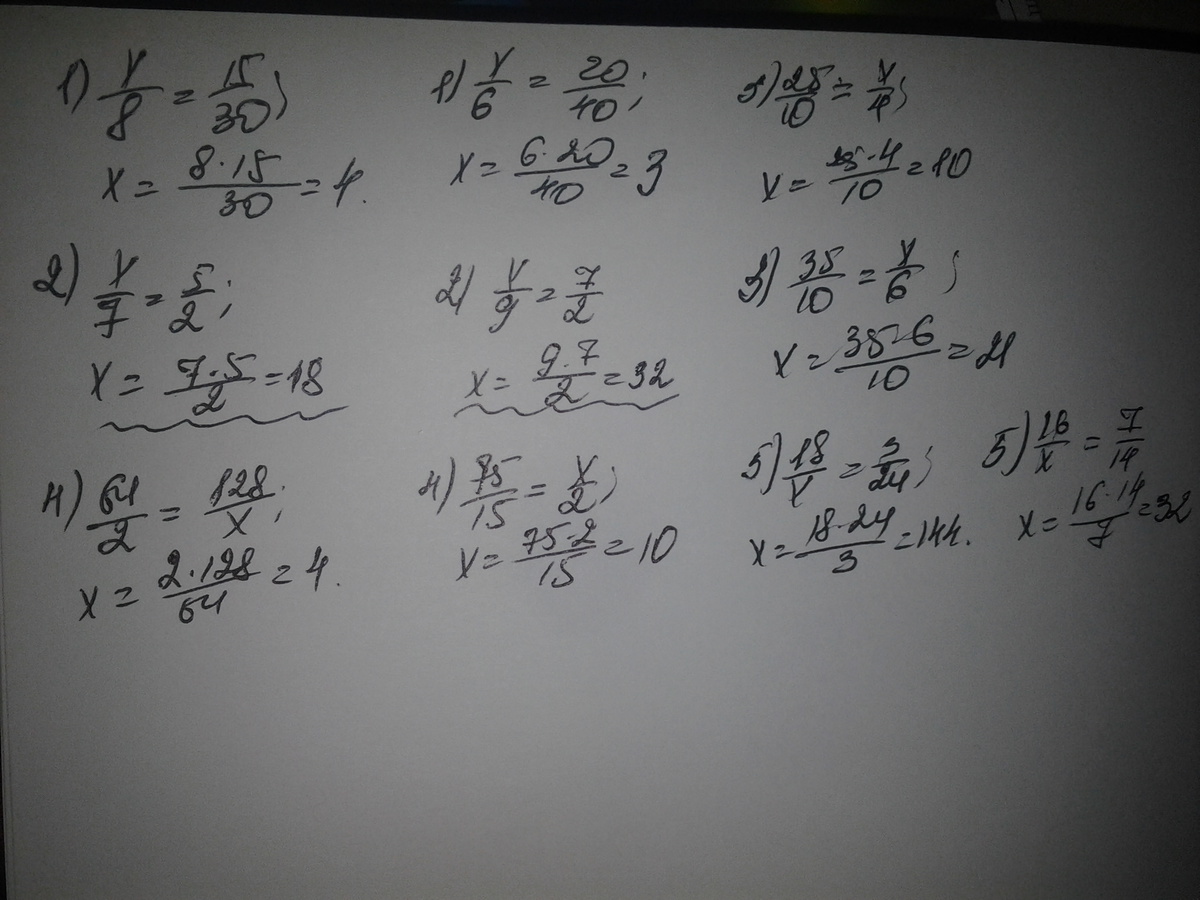 1) x/8 = 15/30;
x = 8·15/30 = 4.
1) x/6 = 20/40;
x = 6·20/40 = 3
3) 25/10 = x/4;
x = 25·4/10 = 10
2) x/7 = 5/2;
x = 7·5/2 = 18
2) x/9 = 7/2
x = 9·7/2 = 32
3) 35/10 = x/6;
x = 35·6/10 = 21
4) 64/2 = 128/x;
x = 2·128/64 = 4.
4) 75/15 = x/2;
x = 75·2/15 = 10
5) 18/x = 3/24;
x = 18·24/3 = 144.
5) 16/x = 7/14
x = 16·14/7 = 32